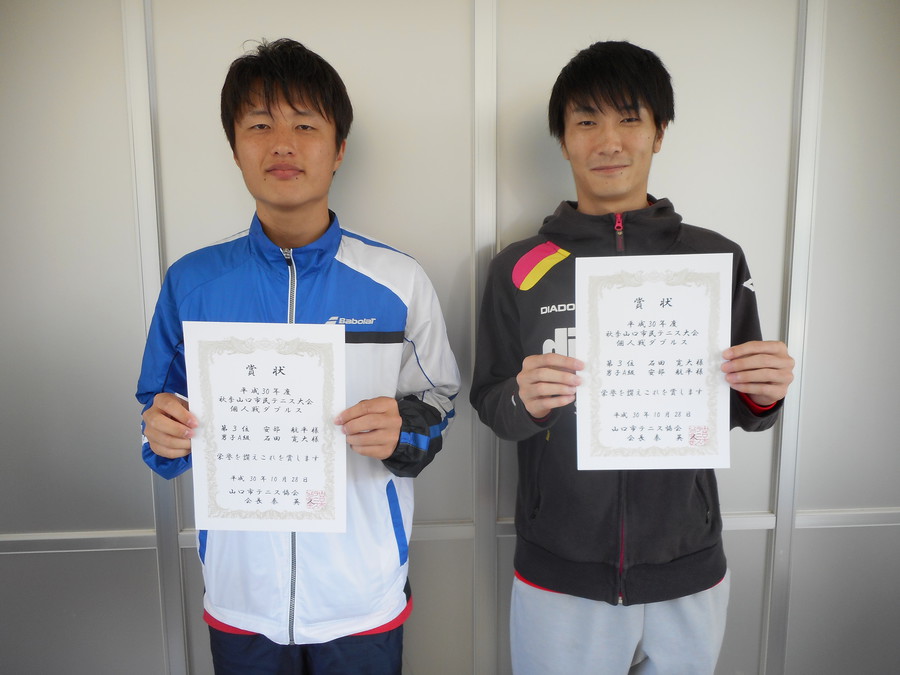 Babolat
賞 状
平成30年度
秋季山口市民テニス大会
個人戦ダブルス
第3位 安部 航平様
男子A級 石田 寛大様
栄誉を讃えこれを賞します
平成30年10月28日
山口市テニス協会
会長 泰 英
DIADO
賞 状
平成30年度
秋季山口市民テニス大会
個人戦ダブルス
第3位 石田 寛大様
男子A級 安部 航平様
栄誉を讃えこれを賞します
平成30年10月28日
山口市テニス協会
会長 泰 英